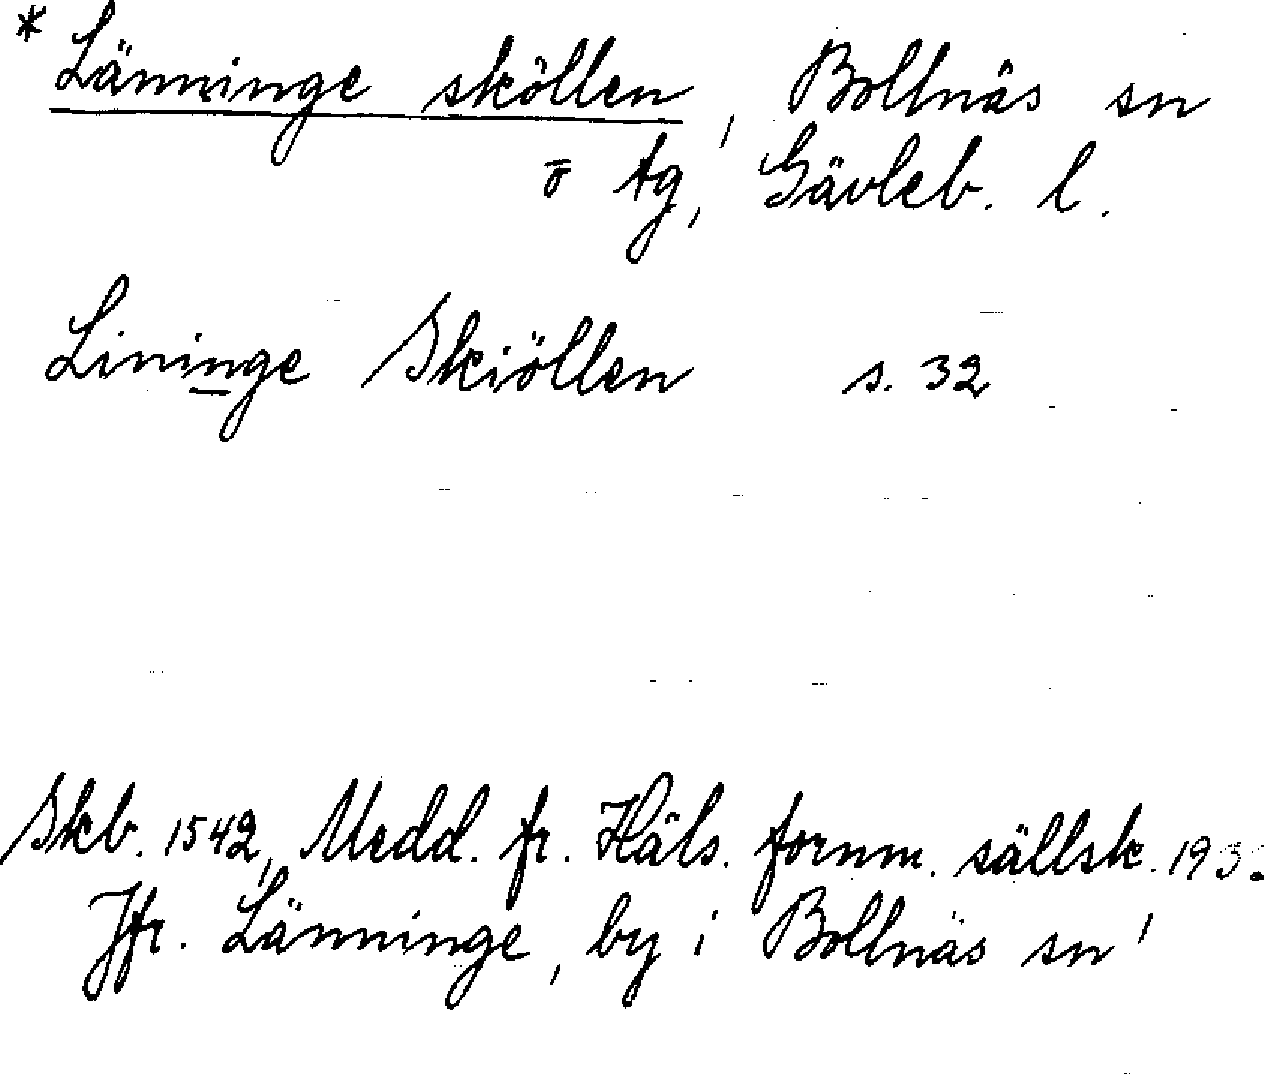 * Länninge sköllen, Bollnäs sn
ō tg, Gävleb. l.
Lininge Skiöllen s. 32
Skb. 1542, Medd. fr. Häls. fornm. sällsk.
Jfr. Länninge, by i Bollnäs sn!